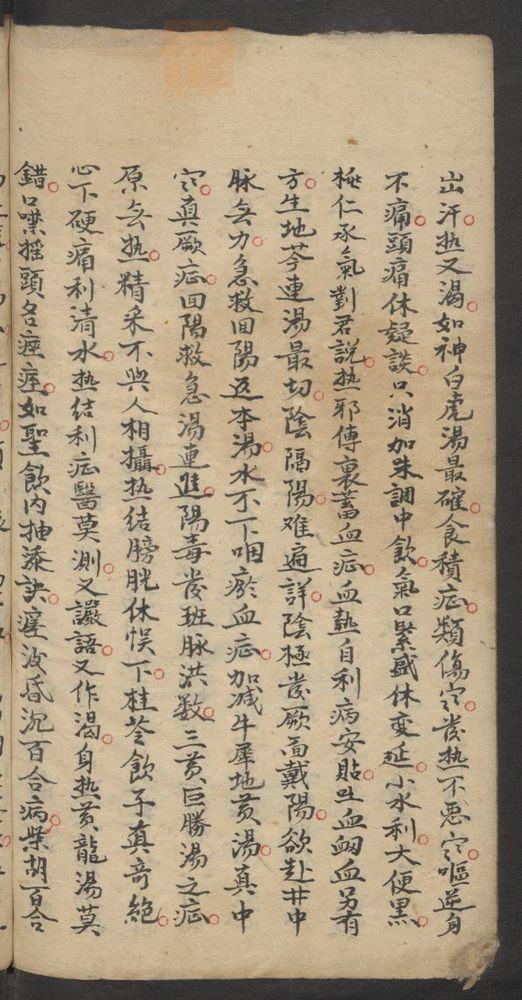 出汗热又渴如神白虎湯最確食積症類傷寒發热不悪寒嘔逆身
不痛頭痛休疑談只消加味調中飲氣口緊盛休変延小水利大便黒
桃仁承氣對君説热邪傳裏蓄血症血熱自利病安貼吐血衂血另有
方生地芩連湯最切陰隔陽难遍詳陰極發厥面戴陽欲赴井中
脉無力急救囬陽返本湯水不下咽瘀血症加减牛犀地黄湯真中
寒真厥症回陽救急湯連進陽毒發班脉洪数三黄巨勝湯之症
原無热精采不與人相攝热结膀胱休悞下桂苓飲子真奇絶
心下硬痛利清水热结利症醫莫測又讝語又作渴身热黄龍湯莫
錯口噤摇頭名痙痓如聖飲内抽添訣瘥後昏沉百合病柴胡百合